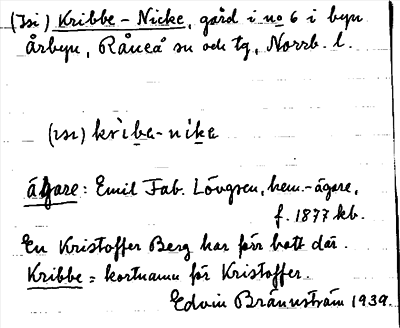 (Isi) Kribbe-Nicke, gård i no 6 i byn
Årbyn, Råneå sn och tg, Norrb. l.
kribe-nike
ägare: Emil Fab. Lövgren, hem.-ägare,
f. 1877 kb.
En Kristoffer Berg har förr bott där.
Kribbe = kortnamn för Kristoffer.
Edvin Brännström 1939.